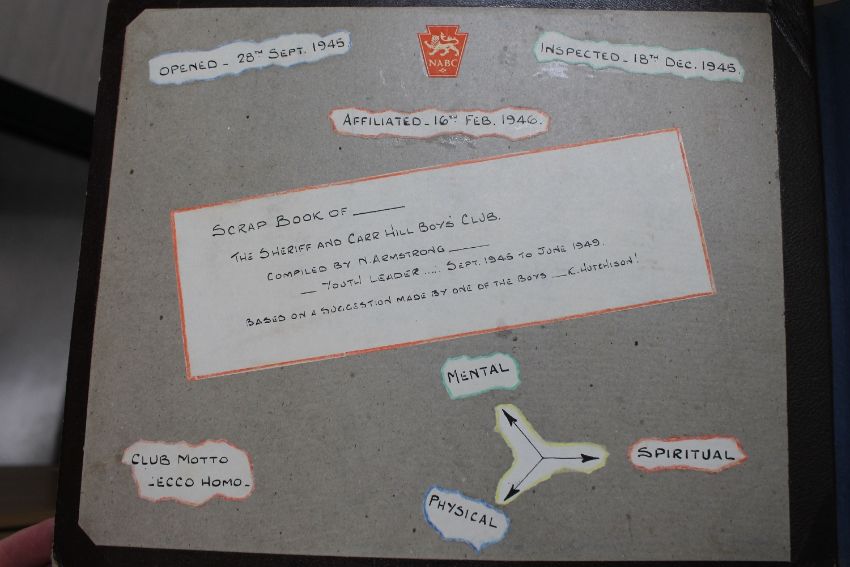 OPENED - 28TH SEPT. 1945
NABC
INSPECTED - 18TH DEC. 1945.
AFFILIATED - 16TH FEB. 1946.
SCRAP BOOK OF ——
THE SHERIFF AND CARR HILL BOYS' CLUB.
COMPILED BY N. ARMSTRONG ——
— YOUTH LEADER..... SEPT. 1945 TO JUNE 1949.
BASED ON A SUGGESTION MADE BY ONE OF THE BOYS — K. HUTCHISON!
MENTAL
CLUB MOTTO
-ECCO HOMO-
SPIRITUAL
PHYSICAL